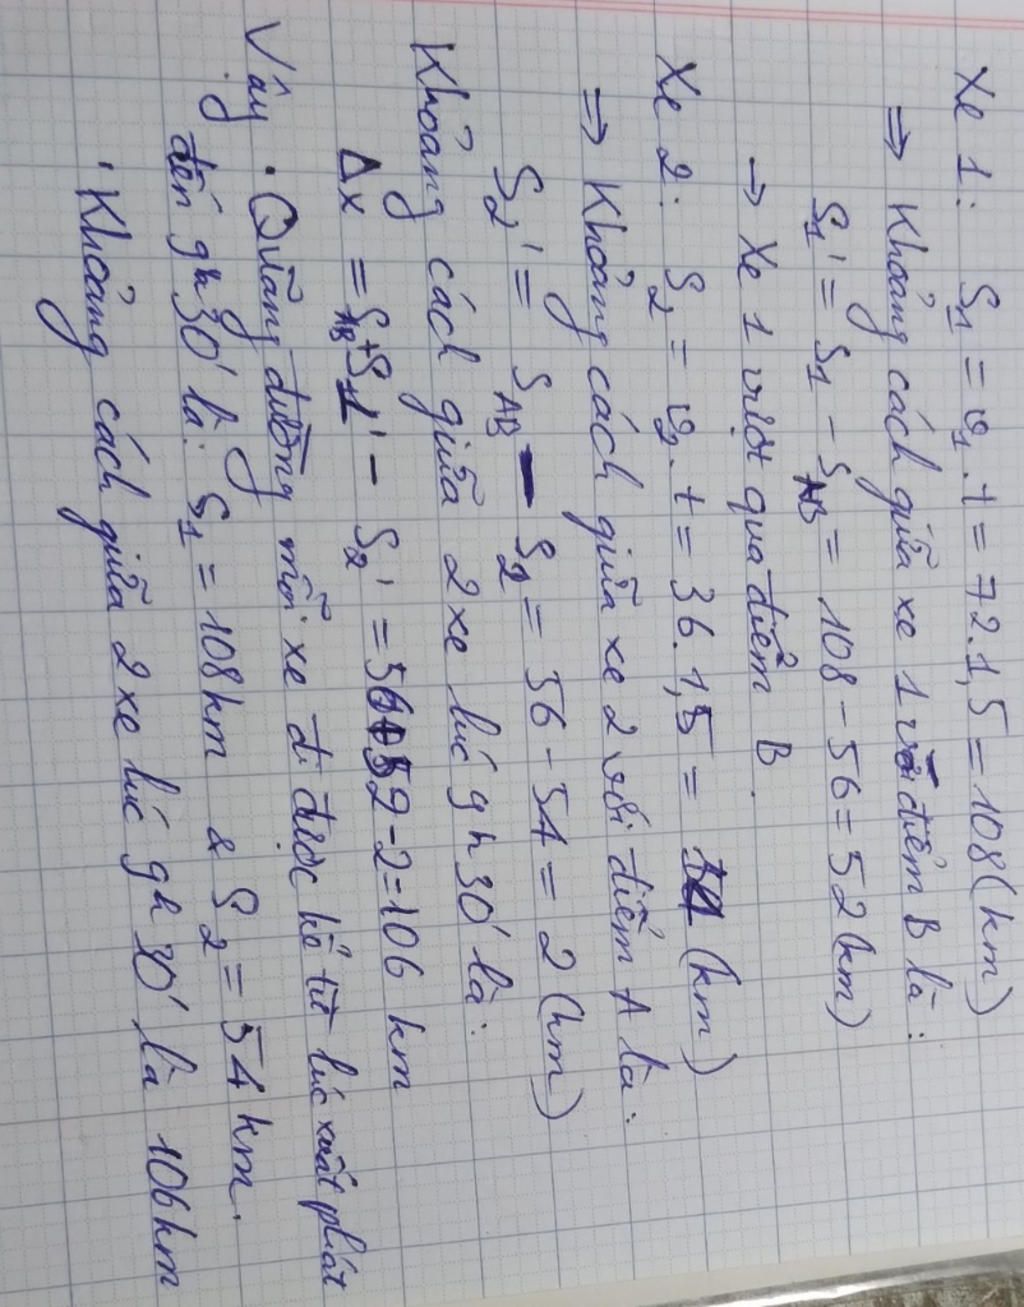 Xe 1: S₁ = v₁.t = 72.1,5 = 108 (km)
⇒ Khoảng cách giữa xe 1 với điểm B là:
S₁' = S₁ - S_AB = 108 - 56 = 52 (km)
→ Xe 1 vượt qua điểm B.
Xe 2: S₂ = v₂.t = 36.1,5 = 54 (km)
⇒ Khoảng cách giữa xe 2 với điểm A là:
S₂' = S_AB - S₂ = 56 - 54 = 2 (km)
Khoảng cách giữa 2 xe lúc 9h30' là:
Δx = S_AB + S₁' - S₂' = 56+52-2=106 km
Vậy · Quãng đường mỗi xe đi được kể từ lúc xuất phát
đến 9h30' là: S₁ = 108km & S₂ = 54km.
· Khoảng cách giữa 2 xe lúc 9h30' là 106km